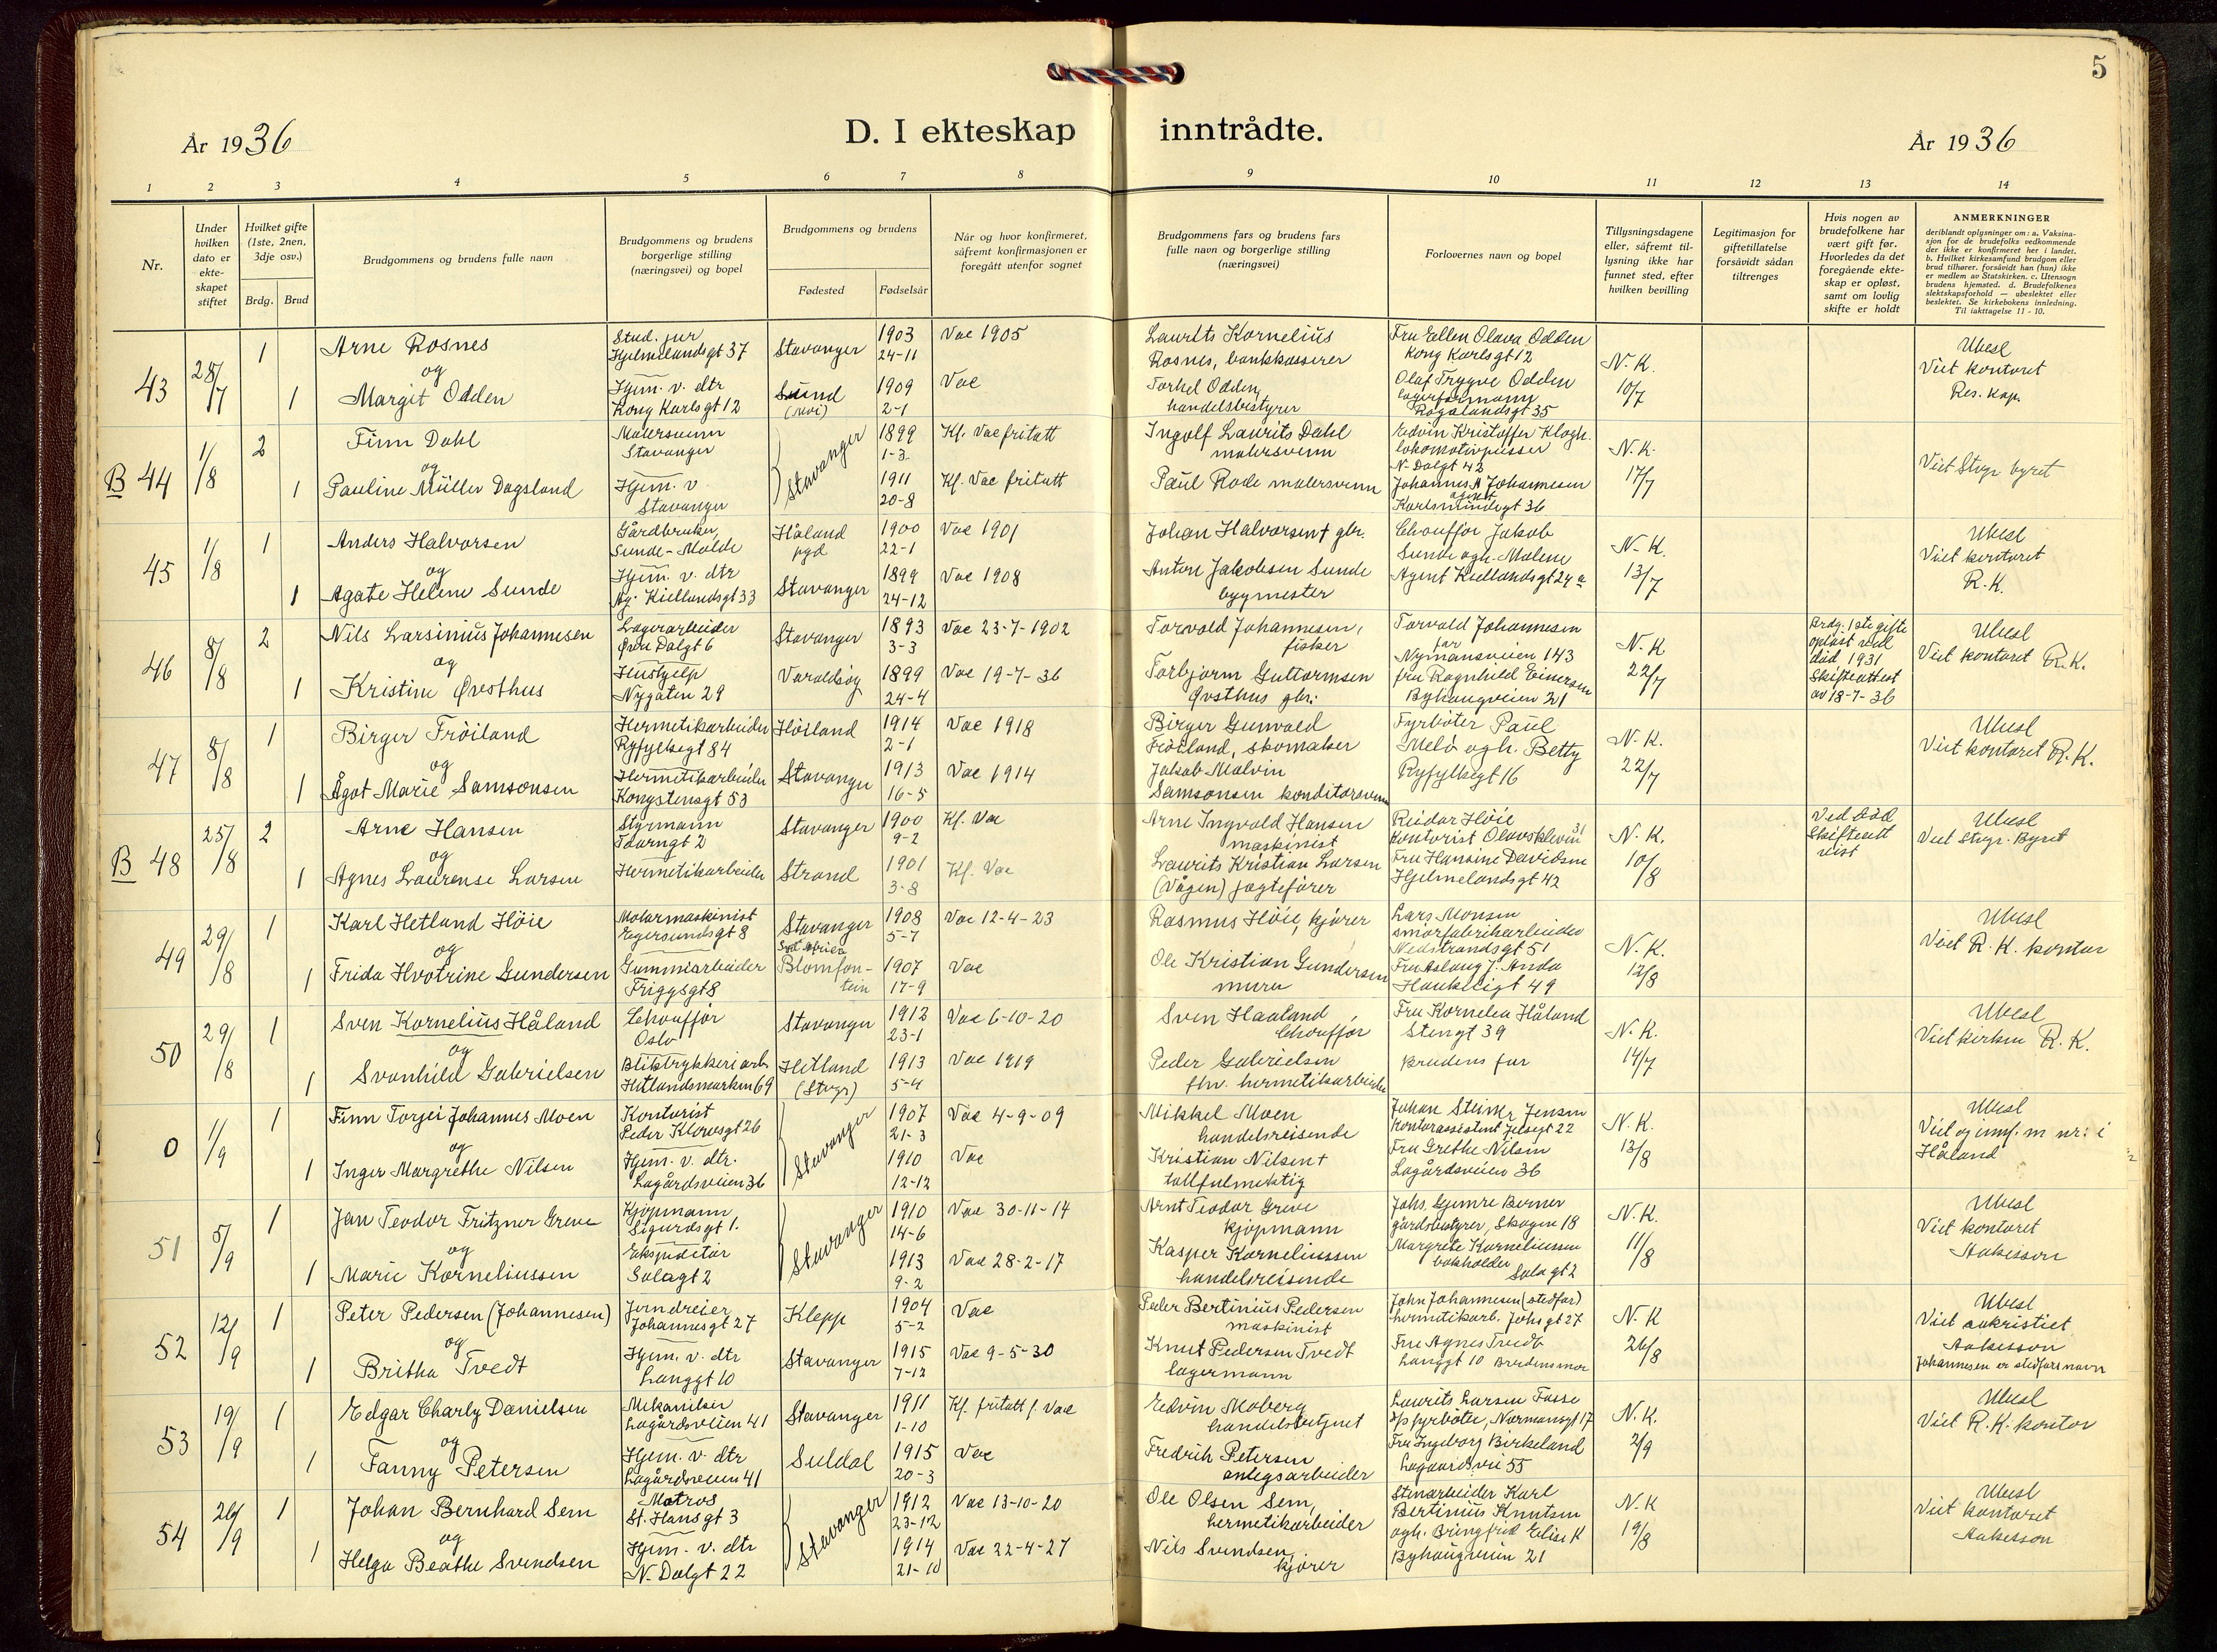 5
År 1936
D. I ekteskap inntrådte.
År 1936
1 2 3 4 5 6 7 8 9 10 11 12 13 14
Nr.
Under hvilken dato er ekte-skapet stiftet
Hvilket gifte (1ste, 2nen, 3dje osv.)
Brdg. Brud
Brudgommens og brudens fulle navn
Brudgommens og brudens borgerlige stilling (næringsvei) og bopel
Brudgommens og brudens
Fødested Fødselsår
Når og hvor konfirmeret, såfremt konfirmasjonen er foregått utenfor sognet
Brudgommens fars og brudens fars fulle navn og borgerlige stilling (næringsvei)
Forlovernes navn og bopel
Tillysningsdagene eller, såfremt til-lysning ikke har funnet sted, efter hvilken bevilling
Legitimasjon for giftetillatelse forsåvidt sådan tiltrenges
Hvis nogen av brudefolkene har vært gift før. Hvorledes da det foregående ekte-skap er opløst, samt om lovlig skifte er holdt
ANMERKNINGER
deriblandt oplysninger om: a. Vaksina-sjon for de brudefolks vedkommende der ikke er konfirmeret her i landet. b. Hvilket kirkesamfund brudgom eller brud tilhører, forsåvidt han (hun) ikke er medlem av Statskirken. c. Utensogn brudens hjemsted. d. Brudefolkenes slektskapsforhold — ubeslektet eller beslektet. Se kirkebokens innledning. Til iakttagelse 11 - 10.
43 28/7 1 Arne Rosnes Stud. jur Hjelmelandsgt 37 Stavanger 1903 24-11 Vac 1905 Laurits Kornelius Rosnes, bankkasserer Fru Ellen Olava Odden Kong Karlsgt 12 N.K. 10/7 Ubesl Viet kontoret Res. Kap.
og
1 Margit Odden Hjem. v. dtr Kong Karlsgt 12 Sund 1909 2-1 Vac Torkel Odden, handelsbestyrer Olaf Trygve Odden lagerformann Rogalandsgt 35
B 44 1/8 2 Finn Dahl Malersvenn Stavanger Stavanger 1899 1-3 Kf. Vac fritatt Ingolf Laurits Dahl malersvenn Edvin Kristoffer Klogh. lokomotivpusser N. Dalgt 42 N.K. 17/7 Viet Stvgr byret
og
1 Pauline Müller Dagsland Hjem. v. Stavanger 1911 20-8 Kf. Vac fritatt Paul Rode malersvenn Johannes A Johannesen agent Karlsmindegt 36
45 1/8 1 Anders Halvorsen Gårdbruker, Sunde-Malde Håland pgd 1900 22-1 Vac 1901 Johan Halvorsen † gbr. Chouffør Jakob Sunde ogh. Malene N.K. 13/7 Ubesl Viet kontoret R.K.
og
1 Agate Helene Sunde Hjem. v. dtr Ag. Kiellandsgt 33 Stavanger 1899 24-12 Vac 1908 Anton Jakobsen Sunde bygmester Agent Kiellandsgt 24 a
46 8/8 2 Nils Larsinius Johannesen Lagerarbeider Øvre Dalgt 6 Stavanger 1893 3-3 Vac 23-7-1902 Torvald Johannesen, fisker Torvald Johannesen far Nymansveien 143 N.K 22/7 Brdg. 1ste gifte opløst ved død 1931 Skifteattest av 18-7-36 Ubesl Viet kontoret R.K.
og
1 Kristine Øvsthus Hushjelp Nygaten 29 Varaldsøy 1899 24-4 Vac 19-7-36 Torbjørn Guttormsen Øvsthus gbr. fru Ragnhild Einersen Byhaugveien 21
47 8/8 1 Birger Frøiland Hermetikarbeider Ryfylkegt 84 Høiland 1914 2-1 Vac 1918 Birger Gunvald Frøiland, skomaker Fyrbøter Paul Melø ogh. Betty N.K. 22/7 Ubesl Viet kontoret R.K.
og
1 Ågot Marie Samsonsen Hermetikarbeider Kongstensgt 53 Stavanger 1913 16-5 Vac 1914 Jakob Malvin Samsonsen konditorsvenn Ryfylkegt 16
B 48 25/8 2 Arne Hansen Styrmann Taarngt 2 Stavanger 1900 9-2 Kf. Vac Arne Ingvald Hansen maskinist Reidar Høie kontorist Olavskleven 31 N.K. 10/8 Ved død Skifteatt vist Ubesl Viet Stvgr. Byret
og
1 Agnes Laurense Larsen Hermetikarbeider Strand 1901 3-8 Kf. Vac Laurits Kristian Larsen (Vågen) jagtefører Fru Hansine Davidsen Hjelmelandsgt 42
49 29/8 1 Karl Hetland Høie Motormaskinist Egersundsgt 8 Stavanger 1908 5-7 Vac 12-4-23 Rasmus Høie, kjører Lars Monsen smørfabrikarbeider Nedstrandsgt 51 N.K. 12/8 Ubesl Viet R.K. kontor
og
1 Frida Kvotrine Gundersen Gummiarbeider Friggsgt 8 Syd Africa Blomfontein 1907 17-9 Vac Ole Kristian Gundersen murer Fru Aslaug J. Anda Haukeligt 49
50 29/8 1 Sven Kornelius Håland Chouffør Oslo Stavanger 1912 23-1 Vac 6-10-20 Sven Haaland Chouffør Fru Kornelia Håland Stengt 39 N.K. 14/7 Ubesl Viet kirken R.K.
og
1 Svanhild Gabrielsen Bliktrykkeriarb. Hetlandsmarken 69 Hetland (Stvgr) 1913 5-4 Vac 1919 Peder Gabrielsen fhv. hermetikarbeider Brudens far
0 11/9 1 Finn Torjei Johannes Moen Kontorist Peder Klowsgt 26 Stavanger 1907 21-3 Vac 4-9-09 Mikkel Moen handelsreisende Johan Steinar Jensen kontorassistent Jelsegt 22 N.K. 13/8 Ubesl Viet og innf. m nr. i Håland
og
1 Inger Margrethe Nilsen Hjem. v. dtr. Lagårdsveien 36 1910 12-12 Vac Kristian Nilsen † tollfulmektig Fru Grethe Nilsen Lagårdsveien 36
51 5/9 1 Jan Teodor Fritzner Greve Kjøpmann Sigurdsgt 1. Stavanger 1910 14-6 Vac 30-11-14 Arnt Teodor Greve kjøpmann Johs. Gjemre Berner gårdsbestyrer, Skagen 18 N.K. 11/8 Ubesl Viet kontoret Aakesson
og
1 Marie Korneliussen Ekspeditør Solagt 2 1913 9-2 Vac 28-2-17 Kasper Korneliussen handelsreisende Margrete Korneliussen bokholder Solagt 2
52 12/9 1 Peter Pedersen (Johannesen) Jerndreier Johannesgt 27 Klepp 1904 5-2 Vac Peder Bertinius Pedersen maskinist John Johannesen (stedfar) hermetikarb. Johsgt 27 N.K 26/8 Ubesl Viet sakristiet Aakesson Johannesen er stedfars navn
og
1 Britha Tvedt Hjem. v. dtr Langgt 10 Stavanger 1915 7-12 Vac 9-5-30 Knut Pedersen Tvedt lagermann Fru Agnes Tvedt Langgt 10 Brudens mor
53 19/9 1 Edgar Charly Danielsen Mekaniker Lagårdsveien 41 Stavanger 1911 1-10 Kf. fritatt f. Vac Edvin Moberg handelsbetjent Laurits Larsen Fosse fyrbøter, Normansgt 17 N.K. 2/9 Ubesl Viet R.K. kontor
og
1 Fanny Petersen Hjem. v dtr Lagårdsveien 41 Suldal 1915 20-3 Vac Fredrik Petersen anlegsarbeider Fru Ingeborg Birkeland Lagaardsvei 55
54 26/9 1 Johan Bernhard Sem Matros St. Hansgt 3 Stavanger 1912 23-12 Vac 13-10-20 Ole Olsen Sem, hermetikarbeider Stenarbeider Karl Bertinius Knutsen N.K 19/8 Ubesl Viet kontoret Aakesson
og
1 Helga Beathe Svendsen Hjem. v. dtr N. Dalgt 22 1914 21-10 Vac 22-4-27 Nils Svendsen, kjører ogh. Elise K Byhaugveien 21